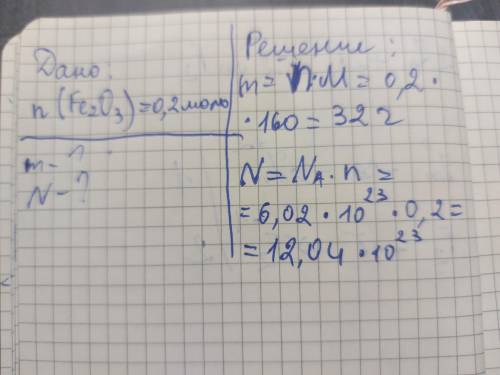 Дано:
n(Fe₂O₃)=0,2 моль
m-?
N-?
Решение:
m= n·M = 0,2 ·
·160 = 32г
N = Nₐ·n =
= 6,02 · 10²³ · 0,2 =
= 12,04 · 10²³